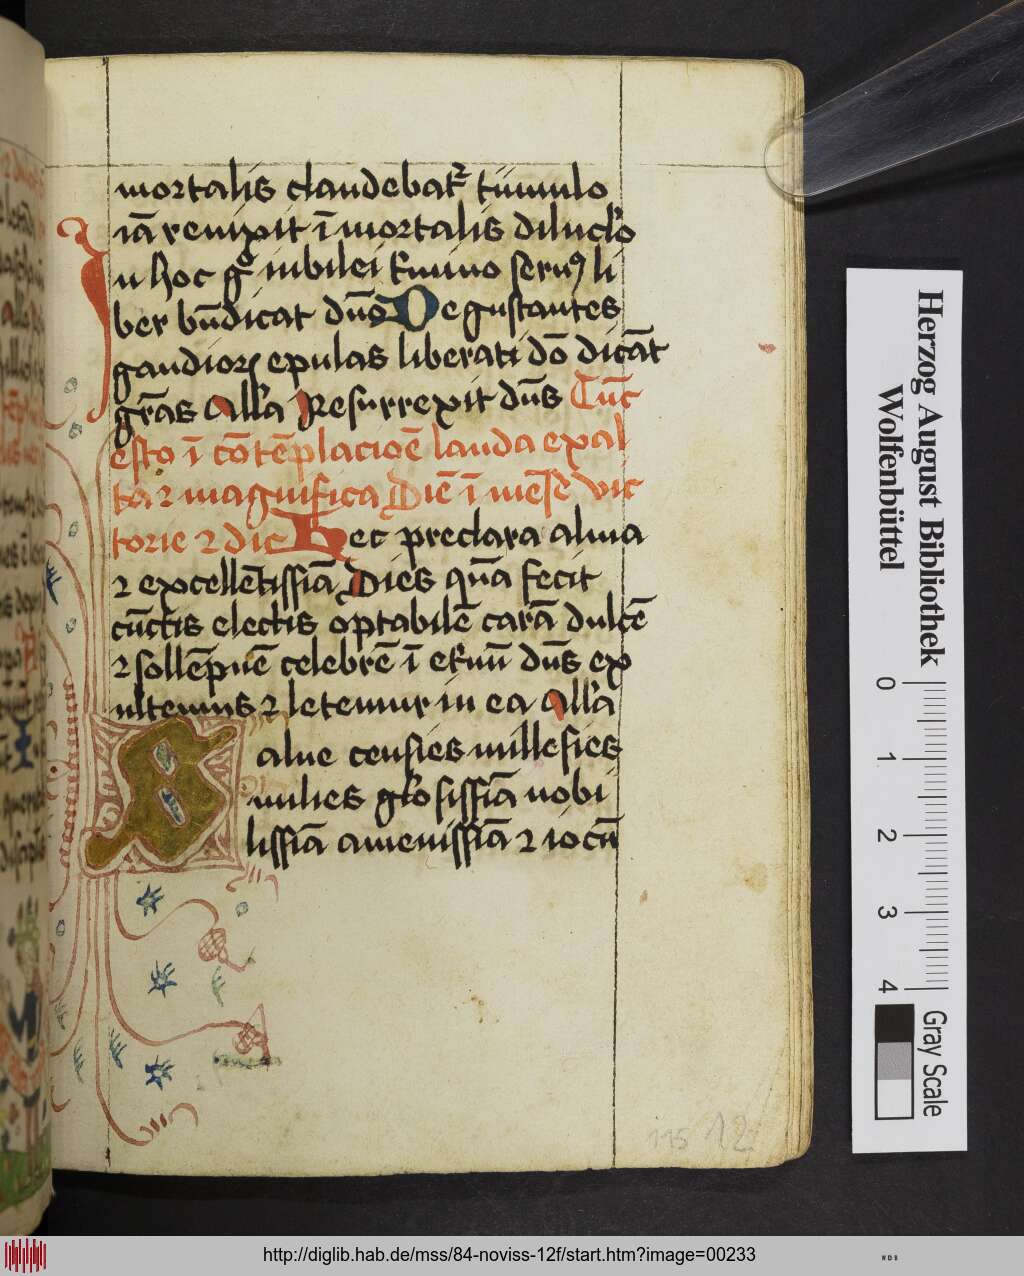 mortalis claudebatr tumulo
iā rempit ī mortalis diluclo
n hoc gͦ iubilei termino seruꝯ li
ber bn̄dicat dn̄o Degustantes
gaudioꝝ epulas liberati dō dicāt
grās Alla Resurrexit dn̄s Cūc
esto ī cōtēplacioē lauda exal
ta ꝛ magnifica Diē ī mēse vic
torie ꝛ dic Hec preclara alma
ꝛ excellētissīa Dies quā fecit
cūctis electis optabilē carā dulcē
ꝛ sollēpnē celebrē ī eternū dn̄s ex
ultemus ꝛ letemur in ea Alla
alue censies millesies
milies glosissīa nobi
lissīa amenissīa ꝛ iocū
115 12
Herzog August Bibliothek
Wolfenbüttel
0 1 2 3 4
Gray Scale
http://diglib.hab.de/mss/84-noviss-12f/start.htm?image=00233